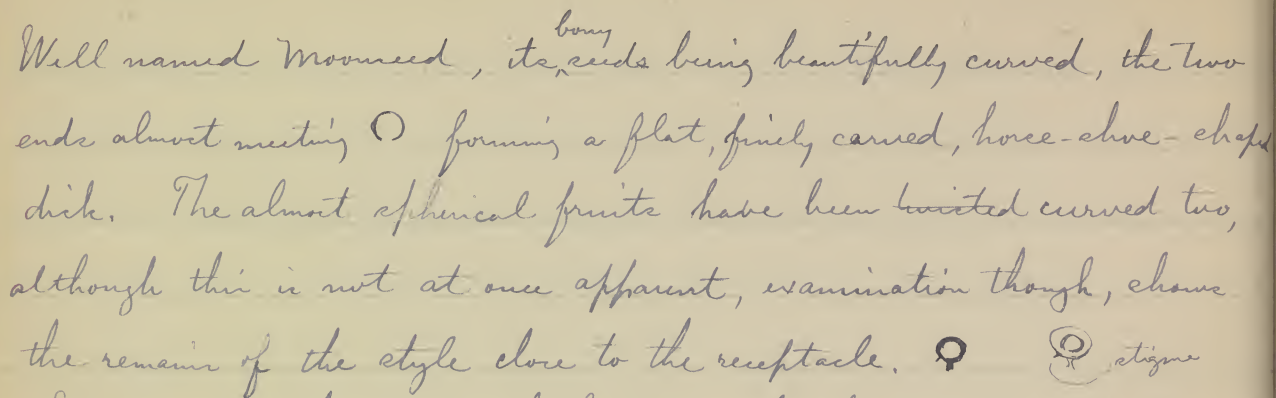 Well named Moonseed, its bony seeds being beautifully curved, the two
ends almost meeting forming a flat, finely carved, horse-shoe-shaped
disk. The almost spherical fruits have been twisted curved two,
although this is not at once apparent, examination though, shows
the remains of the style close to the receptacle. stigma